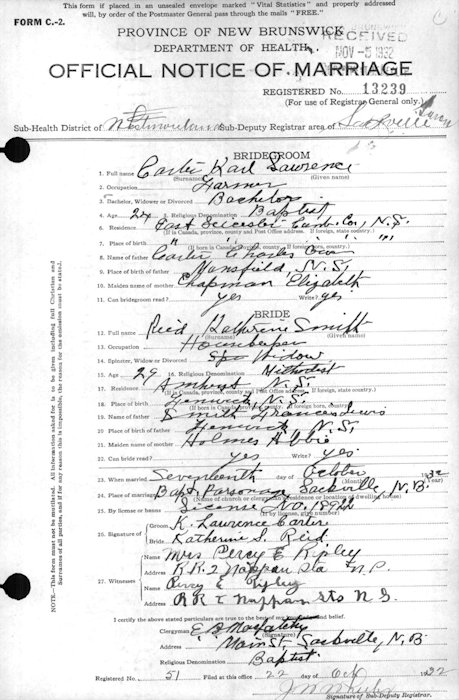 This form if placed in an unsealed envelope marked "Vital Statistics" and properly addressed
will, by order of the Postmaster General pass through the mails "FREE."
FORM C.-2.
PROVINCE OF NEW BRUNSWICK
RECEIVED
DEPARTMENT OF HEALTH
NOV -5 1932
OFFICIAL NOTICE OF MARRIAGE
REGISTERED No. 13239
(For use of Registrar General only.)
Sub-Health District of Westmorland Sub-Deputy Registrar area of Sackville
BRIDEGROOM
1. Full name Carter Karl Lawrence
(Surname) (Given name)
2. Occupation Farmer
3. Bachelor, Widower or Divorced Bachelor
4. Age 24 5. Religious Denomination Baptist
6. Residence East Leicester Cumb. Co., N.S.
(If in Canada, province, county and Post Office address. If foreign, state country.)
7. Place of birth " " " "
(If born in Canada, province, county. If foreign born, country.)
8. Name of father Carter Charles
9. Place of birth of father Mansfield, N.S.
10. Maiden name of mother Chapman Elizabeth
11. Can bridegroom read? yes Write? yes
BRIDE
12. Full name Reid Katherine Smith
(Surname) (Given name)
13. Occupation Housekeeper
14. Spinster, Widow or Divorced Widow
15. Age 29 16. Religious Denomination Methodist
17. Residence Amherst N.S.
(If in Canada, province, county and Post Office address. If foreign, state country.)
18. Place of birth Fenwick, N.S.
(If born in Canada, province, county. If foreign born, country.)
19. Name of father Smith Frances Lewis
20. Place of birth of father Fenwick, N.S.
21. Maiden name of mother Holmes Abbie
22. Can bride read? yes Write? Yes
23. When married Seventeenth October 1932
(Month) (Year)
24. Place of marriage Bapt. Parsonage Sackville, N.B.
(Name of church or clergyman's residence or location of dwelling house)
25. By license or banns License No. 18922
(If by license, give number)
26. Signature of
Groom K. Lawrence Carter
Bride Katherine S. Reid
27. Witnesses
Name Mrs Percy E Ripley
Address R.R.2 Nappan Sta
Name Percy E Ripley
Address R R 2 Nappan Sta N.S.
I certify the above stated particulars are true to the best of my knowledge and belief.
Clergyman E.B.
(Signature)
Address Main St., Sackville, N.B.
Religious Denomination Baptist
Registered No. 51 22 Oct 1932
Signature of Sub-Deputy Registrar
NOTE—This form must not be mutilated. All information asked for is to be given including full Christian and
Surnames of all parties, and if for any reason this is impossible, the reason for the omission must be stated.